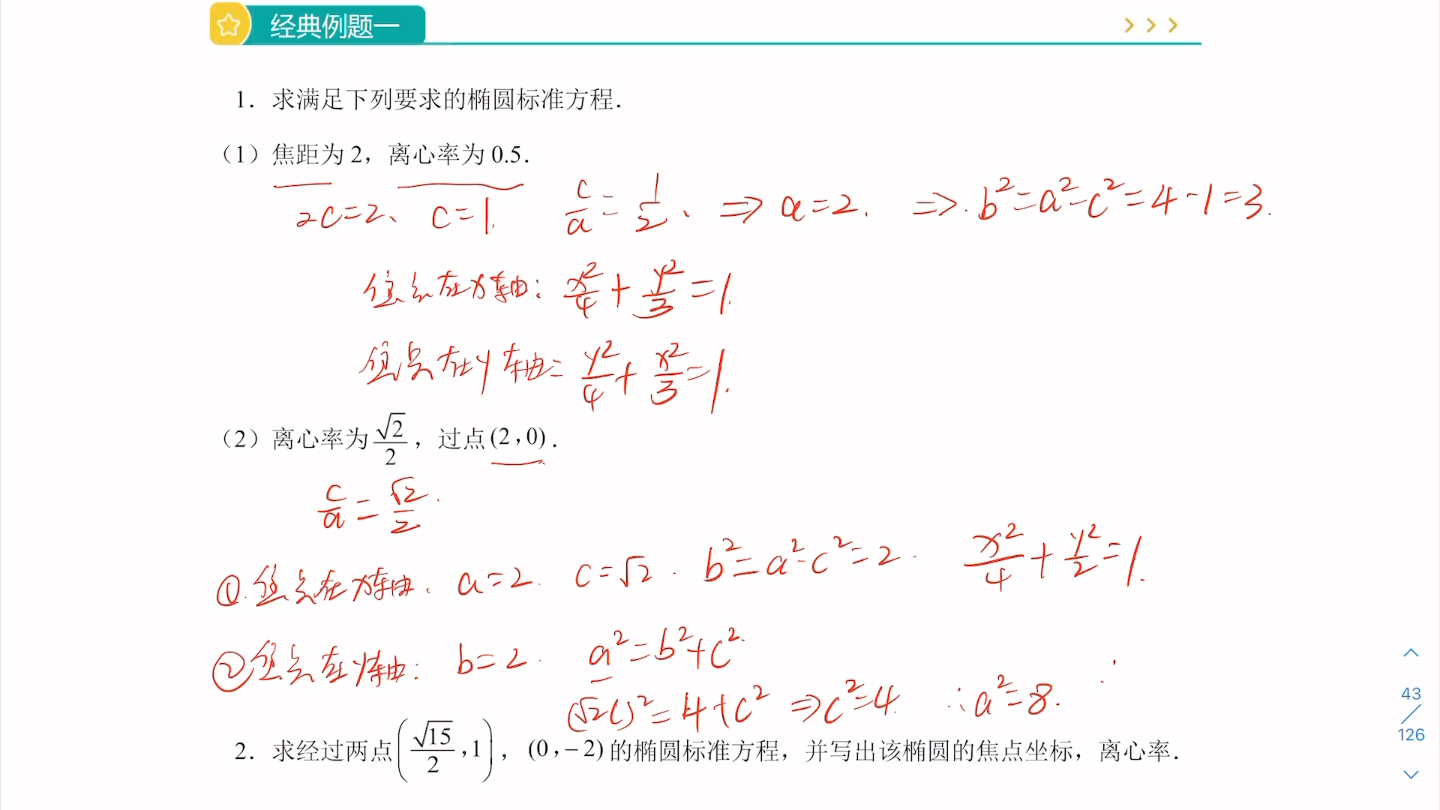 经典例题一
1．求满足下列要求的椭圆标准方程．
（1）焦距为 2，离心率为 0.5．
2c=2、 c=1. c/a=1/2、 ⇒ a=2. ⇒ b²=a²-c²=4-1=3.
焦点在x轴: x²/4+y²/3=1.
焦点在y轴: y²/4+x²/3=1.
（2）离心率为 √2/2，过点(2,0)．
c/a=√2/2.
①.焦点在x轴. a=2. c=√2. b²=a²-c²=2. x²/4+y²/2=1.
②焦点在y轴: b=2. a²=b²+c².
(√2c)²=4+c² ⇒c²=4 ∴a²=8.
2．求经过两点(√15/2,1)，(0,-2)的椭圆标准方程，并写出该椭圆的焦点坐标，离心率．
43
126